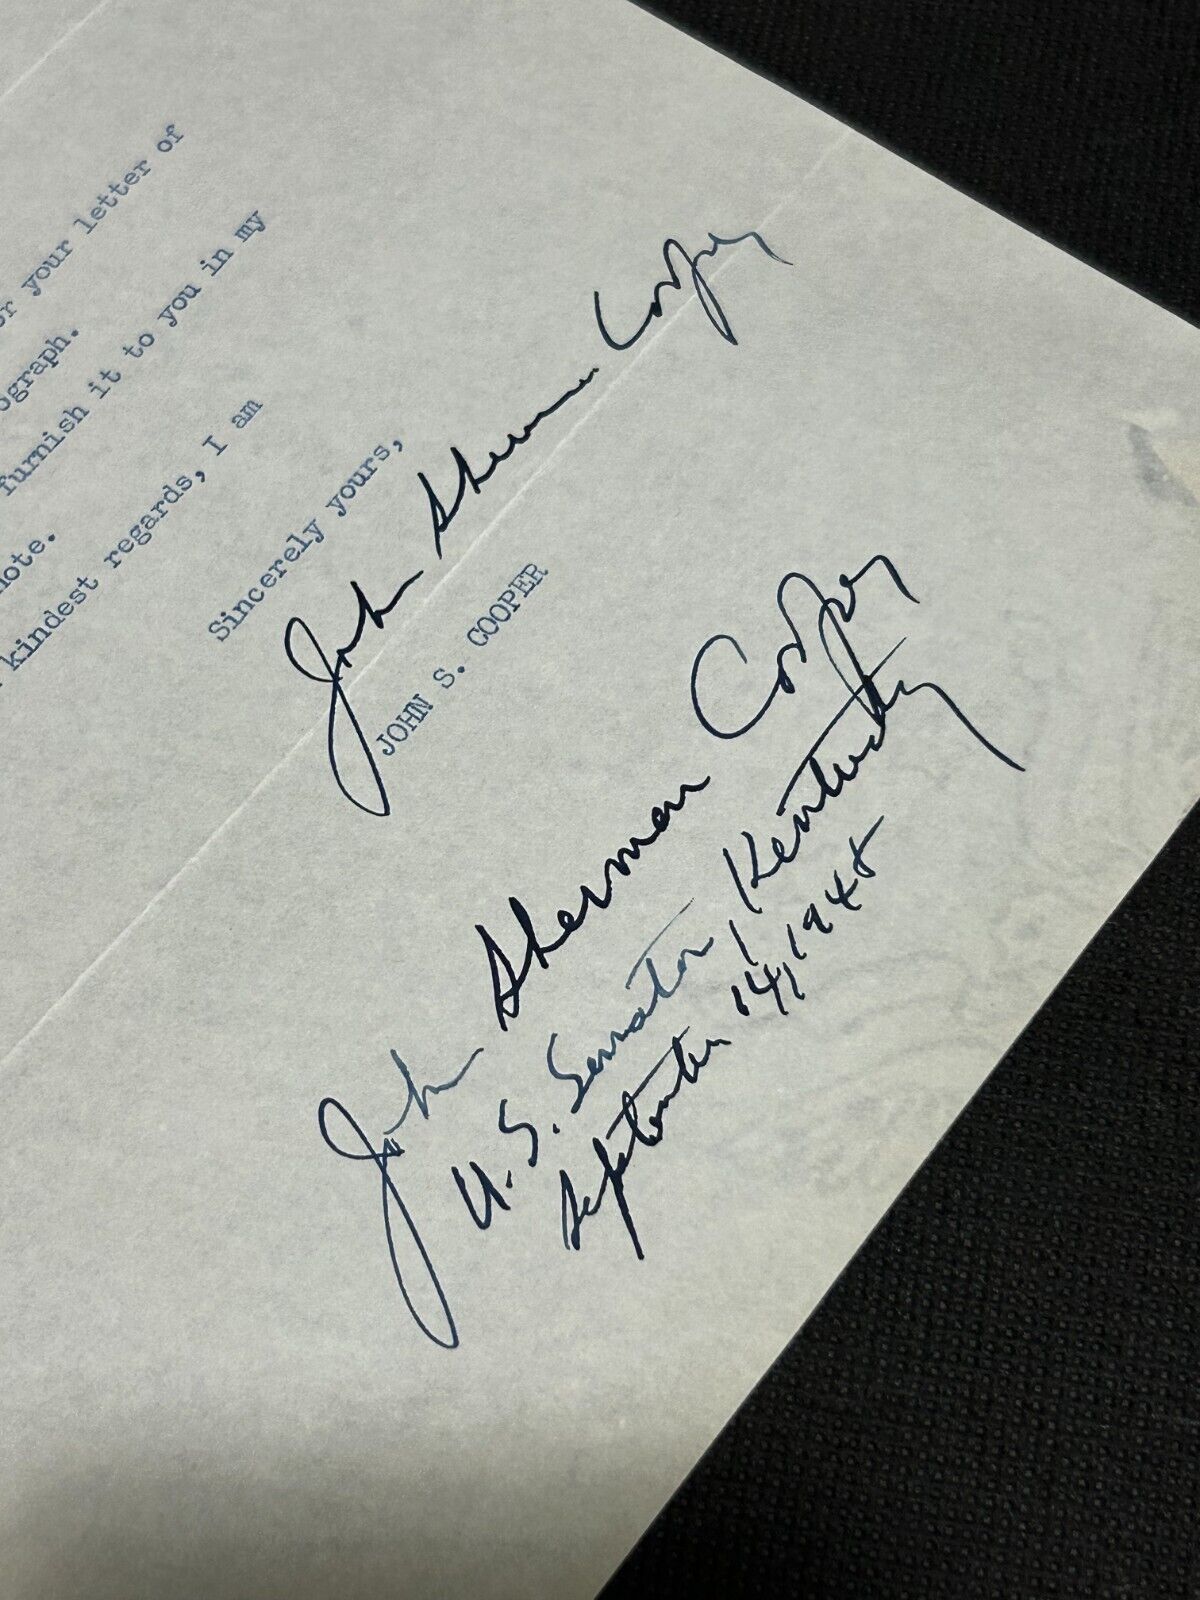 r your letter of
ograph.
furnish it to you in my
note.
kindest regards, I am
Sincerely yours,
John Sherman Cooper
JOHN S. COOPER
John Sherman Cooper
U.S. Senator, Kentucky
September 14, 1948